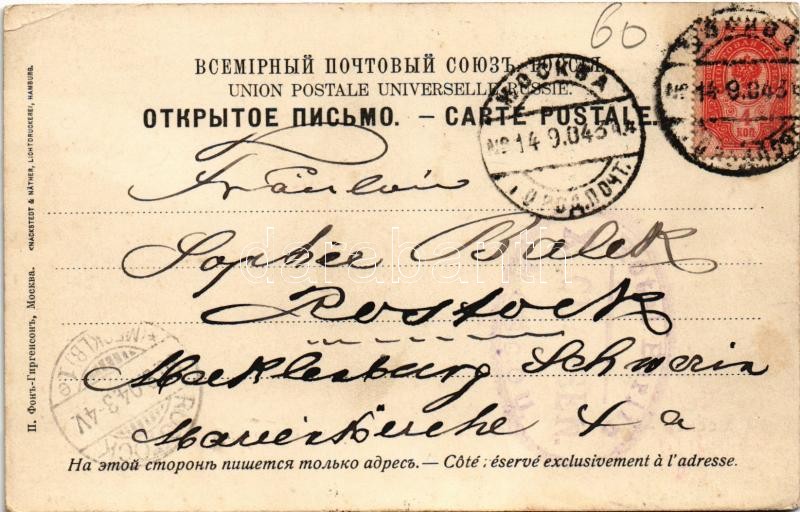 60
ВСЕМІРНЫЙ ПОЧТОВЫЙ СОЮЗЪ. РОССІЯ.
UNION POSTALE UNIVERSELLE. RUSSIE.
ОТКРЫТОЕ ПИСЬМО. — CARTE POSTALE.
МОСКВА
№ 14 9.04 3
ГОРОД.ПОЧТ.
МОСКВА
№ 14 9.04 3
4
КОП.
Fräulein
Sophie Bulek
Rostock
Mecklenburg Schwerin
Marienkirche 4 a
ROSTOCK
(MECKLB) 1
.04.3-4V.
darabanth
На этой сторонѣ пишется только адресъ. — Côté réservé exclusivement à l'adresse.
П. Фонъ-Гиргенсонъ, Москва. KNACKSTEDT & NÄTHER, LICHTDRUCKEREI, HAMBURG.